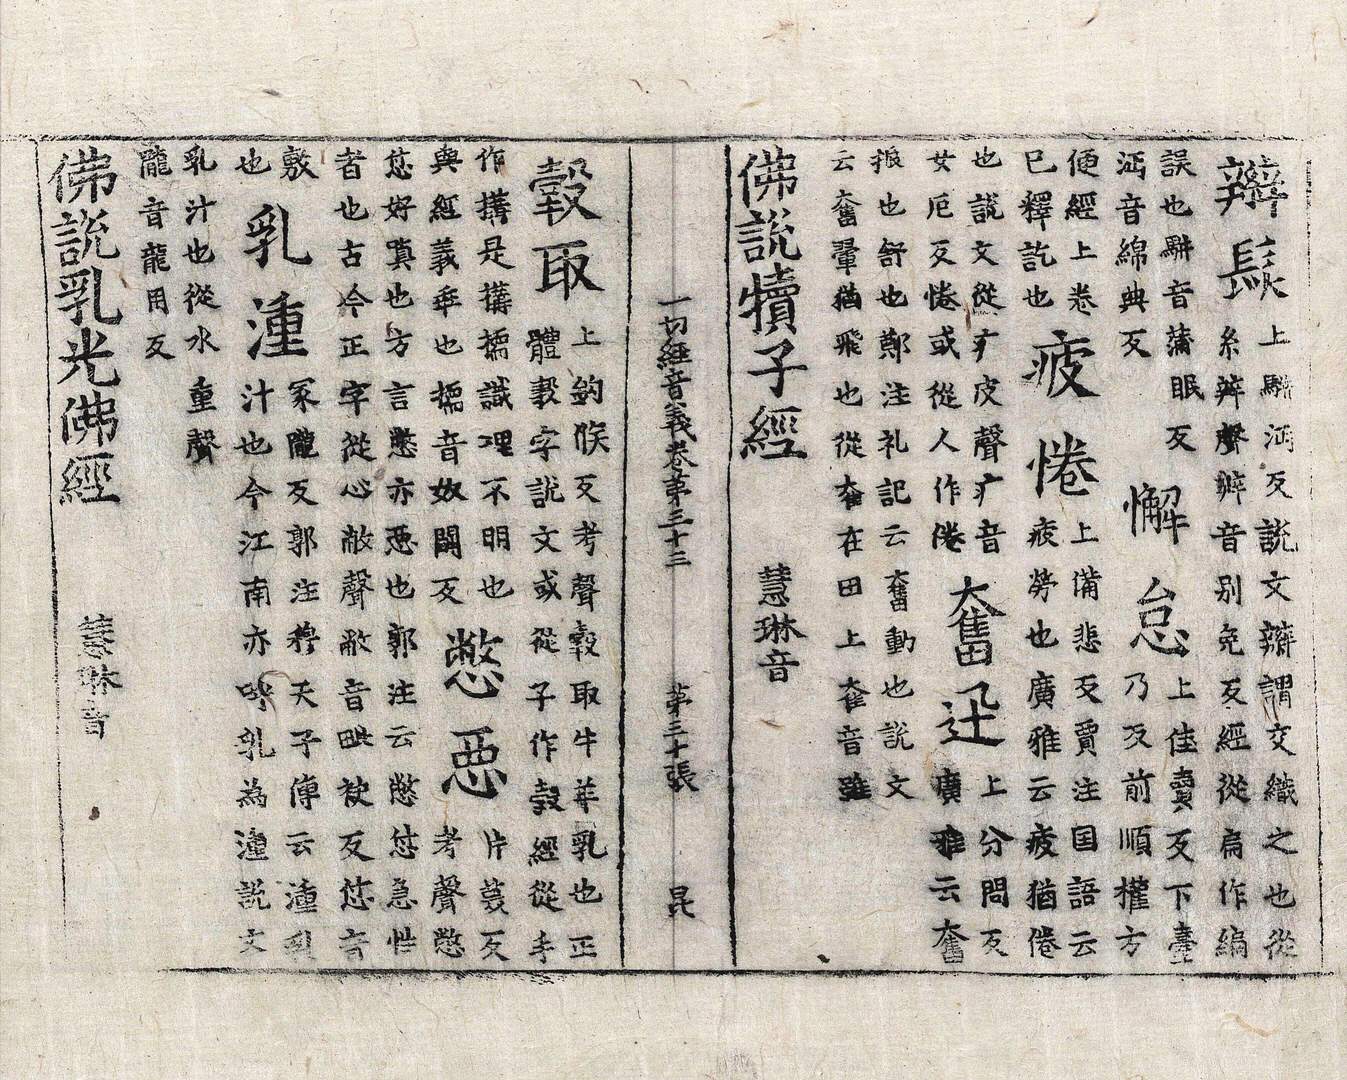 辮髮上駢沔反說文辮謂交織之也從
糸辡聲辡音別免反經從扁作編
誤也駢音蒲眠反
沔音綿典反 懈怠上佳賣反下臺
乃反前順權方
便經上卷
已釋訖也 疲惓上備悲反賈注国語云
疲勞也廣雅云疲猶倦
也說文從疒皮聲疒音
女厄反惓或從人作倦 奮迅上分問反
廣雅云奮
振也舒也鄭注礼記云奮動也說文
云奮翬猶飛也從奞在田上奞音雖
佛說犢子經 慧琳音
一切經音義卷第三十三 第三十張 昆
㝅取上鉤候反考聲㝅取牛羊乳也正
體㝅字說文或從子作㝅經從手
作搆是搆擩識理不明也
與經義乖也擩音奴鬪反 憋惡片蔑反
考聲憋
怤好嗔也方言憋亦惡也郭注云憋怤急性
者也古今正字從心敝聲敝音毗袂反怤音
敷
也 乳湩冢隴反郭注穆天子傳云湩乳
汁也今江南亦呼乳為湩說文
乳汁也從水重聲
隴音龍用反
佛說乳光佛經 慧琳音